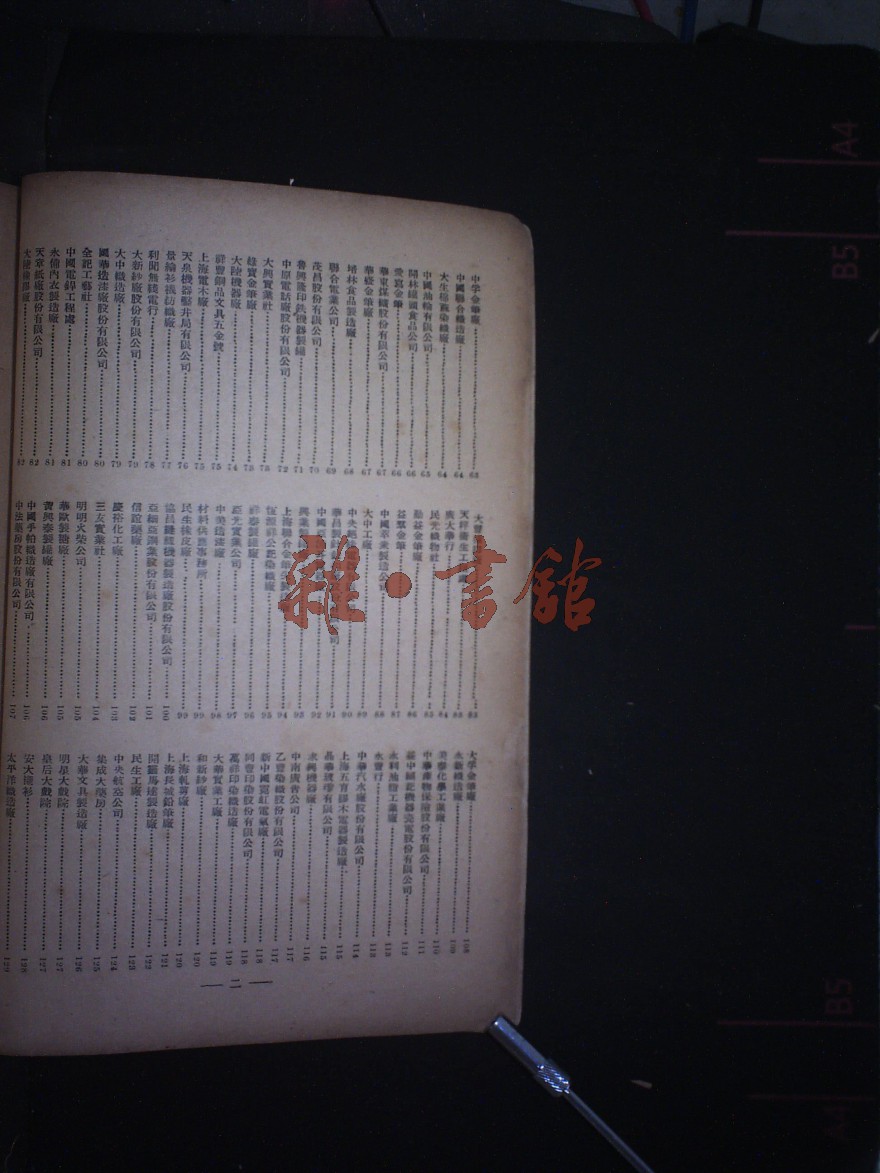 中學金筆廠 63
中國聯合織造廠 64
大生棉蔴染織廠 64
中國油輪有限公司 65
開林罐頭食品公司 66
愛寫金筆 66
華東保險股份有限公司 67
華盛金筆廠 67
培林食品製造廠 68
聯合電業公司 69
茂昌股份有限公司 70
魯興隆印鉄機器製罐 71
中原電話廠股份有限公司 72
大興實業社 73
綠寶金筆廠 73
大陸機器廠 74
祥豐銅品文具五金號 75
上海電木廠 75
天泉機器鑿井局有限公司 76
景綸衫襪紡織廠 77
利聞無綫電行 78
大新紗廠股份有限公司 79
大中織造廠 79
國華造漆廠股份有限公司 80
全記工藝社 80
中國電銲工程處 81
永備內衣製造廠 81
天章紙廠股份有限公司 82
82
83
83
廣大華行 84
民光織物社 85
勤益金筆廠 86
益羣金筆 87
中國萃衆製造公司 88
大中工廠 89
90
91
92
93
上海聯合金筆 94
恆源祥公記染織廠 95
祥泰製罐廠 96
亞光實業公司 97
中美造漆廠 98
材料供應事務所 99
民生橡皮廠 99
協昌縫紉機器製造廠股份有限公司 100
亞細亞酒業股份有限公司 101
信誼藥廠 102
慶裕化工廠 103
三友實業社 104
明明火柴公司 105
華歐製糖廠 105
黃興泰製罐廠 106
中國手帕織造廠有限公司 106
中法藥房股份有限公司 107
大學金筆廠 108
永新織造廠 109
美豐化學工業廠 110
中華產物保險股份有限公司 111
新中國記機器瓷電股份有限公司 112
永利油漆工業廠 113
永豐行 113
中華汽水廠股份有限公司 114
上海五育膠木電器製造廠 115
晶華玻璃有限公司 115
永興機器廠 116
中南廣告公司 117
乙豐染織股份有限公司 117
新中國霓虹電氣廠 118
同豐印染股份有限公司 118
萬祥印染織造廠 119
大華實業工廠 119
和新紗廠 120
上海軋剪廠 120
上海長城鉛筆廠 121
開籬馬達製造廠 122
民生工廠 123
中央航空公司 124
集成大藥房 125
大華文具製造廠 126
明星大戲院 127
皇后大戲院 127
安大襯衫 128
太平洋織造廠 129
— 二 —
雜·書館
A4
B5
B5
A4